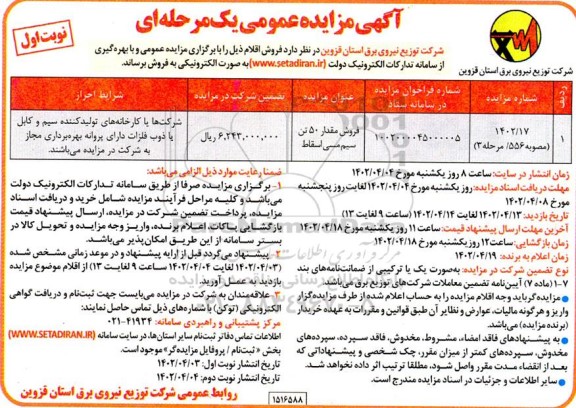 آگهی مزایده عمومی یک مرحله‌ای
نوبت اول
شرکت توزیع نیروی برق استان قزوین در نظر دارد فروش اقلام ذیل را با برگزاری مزایده عمومی و با بهره‌گیری
از سامانه تدارکات الکترونیک دولت (www.setadiran.ir) به صورت الکترونیکی به فروش برساند.
شرکت توزیع نیروی برق استان قزوین
ردیف
شماره مزایده
شماره فراخوان مزایده در سامانه ستاد
عنوان مزایده
تضمین شرکت در مزایده
شرایط احراز
۱
۱۴۰۲/۱۷
(مصوبه۵۵۶/ مرحله۳)
فروش مقدار ۵۰ تن سیم مسی اسقاط
۶,۲۴۳,۰۰۰,۰۰۰ ریال
شرکت‌ها یا کارخانه‌های تولیدکننده سیم و کابل
یا ذوب فلزات دارای پروانه بهره‌برداری مجاز
به شرکت در مزایده می‌باشند.
زمان انتشار در سایت: ساعت ۸ روز یکشنبه مورخ ۱۴۰۲/۰۴/۰۴
مهلت دریافت اسناد مزایده: روز یکشنبه مورخ ۱۴۰۲/۰۴/۰۴ لغایت روز پنجشنبه
مورخ ۱۴۰۲/۰۴/۰۸
تاریخ بازدید: ۱۴۰۲/۰۴/۱۳ لغایت ۱۴۰۲/۰۴/۱۴ (ساعت ۹ لغایت ۱۳)
آخرین مهلت ارسال پیشنهاد قیمت: ساعت ۱۱ روز یکشنبه مورخ ۱۴۰۲/۰۴/۱۸
زمان بازگشایی: ساعت ۱۲ روز یکشنبه مورخ ۱۴۰۲/۰۴/۱۸
زمان اعلام به برنده: ۱۴۰۲/۰۴/۱۹
نوع تضمین شرکت در مزایده: به‌صورت یک یا ترکیبی از ضمانت‌نامه‌های بند
۱-۷ (ماده ۷) آیین‌نامه تضمین معاملات شرکت‌های توزیع برق می‌باشد.
مزایده‌گر باید وجه اقلام مزایده را به حساب اعلام شده از طرف مزایده‌گزار
واریز و هرگونه مالیات، عوارض و نظایر آن طبق قوانین و مقررات به عهده خریدار
(برنده مزایده) می‌باشد.
به پیشنهادهای فاقد امضاء، مشروط، مخدوش، فاقد سپرده، سپرده‌های
مخدوش، سپرده‌های کمتر از میزان مقرر، چک شخصی و پیشنهاداتی که
بعد از انقضاء مدت مقرر واصل شود، مطلقا ترتیب اثر داده نخواهد شد.
سایر اطلاعات و جزئیات در اسناد مزایده مندرج است.
ضمنا رعایت موارد ذیل الزامی می‌باشد:
۱- برگزاری مزایده صرفا از طریق سامانه تدارکات الکترونیک دولت
می‌باشد و کلیه مراحل فرآیند مزایده شامل خرید و دریافت اسناد
مزایده، پرداخت تضمین شرکت در مزایده، ارسال پیشنهاد قیمت
بازگشایی پاکات، اعلام برنده، واریز وجه مزایده و تحویل کالا در
بستر سامانه از این طریق امکان‌پذیر می‌باشد.
۲- پیشنهاد می‌گردد قبل از ارایه پیشنهاد و در موعد زمانی مشخص شده
بازدید به عمل آورید.
۳- علاقه‌مندان به شرکت در مزایده می‌بایست جهت ثبت‌نام و دریافت گواهی
الکترونیکی (توکن) با شماره‌های ذیل تماس حاصل نمایند:
مرکز پشتیبانی و راهبری سامانه: ۴۱۹۳۴-۰۲۱
اطلاعات تماس دفاتر ثبت‌نام سایر استان‌ها، در سایت سامانه (WWW.SETADIRAN.IR)
بخش «ثبت‌نام / پروفایل مزایده‌گر» موجود است.
تاریخ انتشار نوبت اول: ۱۴۰۲/۰۴/۰۳
تاریخ انتشار نوبت دوم: ۱۴۰۲/۰۴/۰۴
روابط عمومی شرکت توزیع نیروی برق استان قزوین
۱۵۱۶۵۸۸